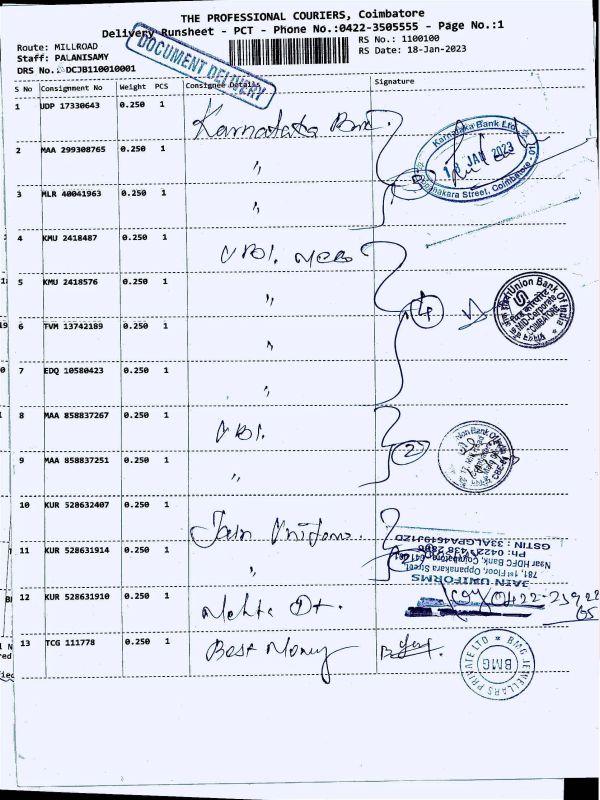 THE PROFESSIONAL COURIERS, Coimbatore
Delivery Runsheet - PCT - Phone No.:0422-3505555 - Page No.:1
Route: MILLROAD
RS No.: 1100100
Staff: PALANISAMY
RS Date: 18-Jan-2023
DRS No.: DCJB110010001
DOCUMENT DELIVERY
S No Consignment No Weight PCS Consignee Details Signature
1 UDP 17330643 0.250 1 Karnataka Bank
Karnataka Bank Ltd.
18 JAN 2023
Street, Coimbatore - 01
2 MAA 299308765 0.250 1 "
3 MLR 40041963 0.250 1 "
4 KMU 2418487 0.250 1 UBI. MCB
5 KMU 2418576 0.250 1 "
4
Union Bank Of India
Mid-Corporate
COIMBATORE
6 TVM 13742189 0.250 1 "
7 EDQ 10580423 0.250 1 "
8 MAA 858837267 0.250 1 UBI.
2
9 MAA 858837251 0.250 1 "
10 KUR 528632407 0.250 1 Jain Uniforms.
11 KUR 528631914 0.250 1 "
JAIN UNIFORMS
781, 1st Floor, Oppanakara Street
Near HDFC Bank, Coimbatore
GSTIN : 33ALGPA4619J1ZD
12 KUR 528631910 0.250 1 Mehta Dt.
13 TCG 111778 0.250 1 Best Money
BMG JEWELLARS PRIVATE LTD
BMG